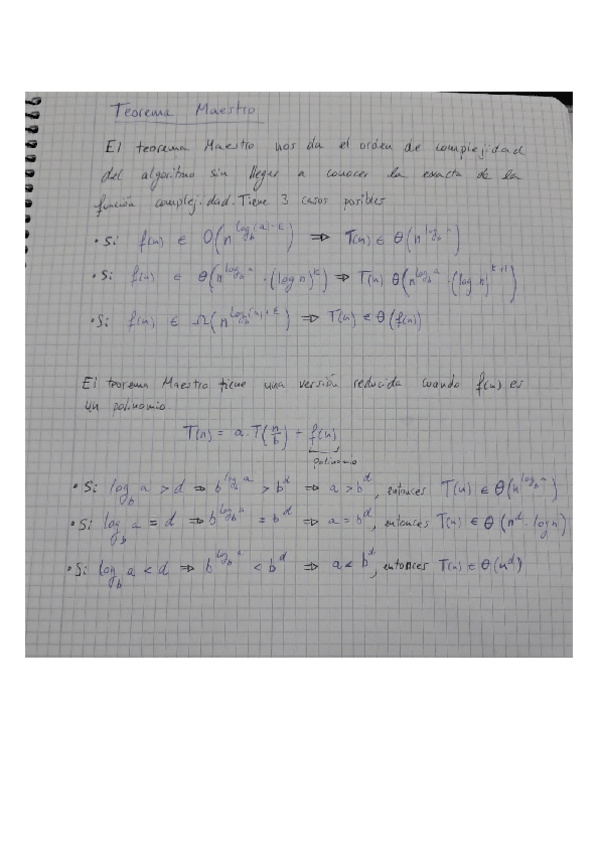 Teorema Maestro
El teorema Maestro nos da el orden de complejidad
del algoritmo sin llegar a conocer la exacta de la
función complejidad. Tiene 3 casos posibles
• Si f(n) ∈ O(n^(log_b(a)-ε)) ⇒ T(n) ∈ θ(n^(log_b a))
• Si f(n) ∈ θ(n^(log_b a) · (log n)^k) ⇒ T(n) θ(n^(log_b a) · (log n)^(k+1))
• Si f(n) ∈ Ω(n^(log_b(a)+ε)) ⇒ T(n) ∈ θ(f(n))
El teorema Maestro tiene una versión reducida cuando f(n) es
un polinomio.
T(n) = a·T(n/b) + f(n)
polinomio
• Si log_b a > d ⇒ b^(log_b a) > b^d ⇒ a > b^d, entonces T(n) ∈ θ(n^(log_b a))
• Si log_b a = d ⇒ b^(log_b a) = b^d ⇒ a = b^d, entonces T(n) ∈ θ(n^d · log n)
• Si log_b a < d ⇒ b^(log_b a) < b^d ⇒ a < b^d, entonces T(n) ∈ θ(n^d)